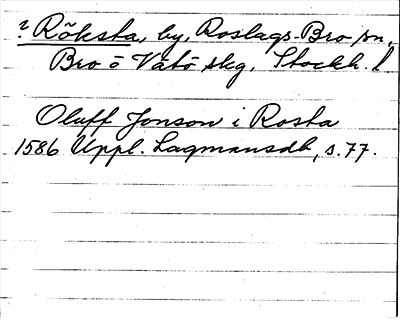 ? Röksta, by, Roslags-Bro sn,
Bro o Vätö skg, Stockh. l
Oluff Jonson i Rosta
1586 Uppl. Lagmansdb, s. 77.